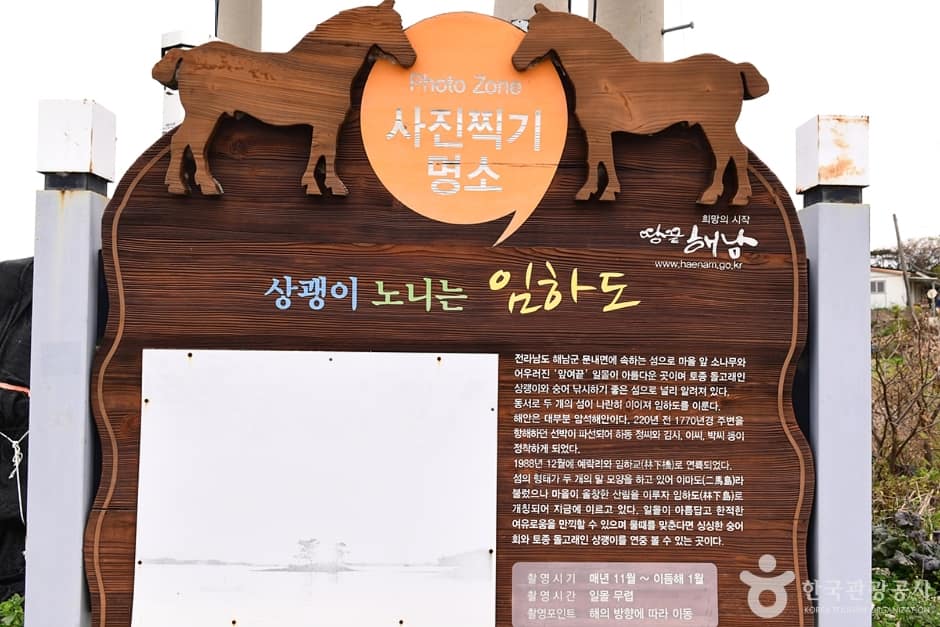 Photo Zone
사진찍기
명소
희망의 시작
땅끝해남
www.haenam.go.kr
상괭이 노니는 임하도
전라남도 해남군 문내면에 속하는 섬으로 마을 앞 소나무와
어우러진 '앞여끝' 일몰이 아름다운 곳이며 토종 돌고래인
상괭이와 숭어 낚시하기 좋은 섬으로 널리 알려져 있다.
동서로 두 개의 섬이 나란히 이어져 임하도를 이룬다.
해안은 대부분 암석해안이다. 220년 전 1770년경 주변을
항해하던 선박이 파선되어 하동 정씨와 김시, 이씨, 박씨 등이
정착하게 되었다.
1988년 12월에 예락리와 임하교(林下橋)로 연륙되었다.
섬의 형태가 두 개의 말 모양을 하고 있어 이마도(二馬島)라
불렀으나 마을이 울창한 산림을 이루자 임하도(林下島)로
개칭되어 지금에 이르고 있다. 일몰이 아름답고 한적한
여유로움을 만끽할 수 있으며 물때를 맞춘다면 싱싱한 숭어
회와 토종 돌고래인 상괭이를 연중 볼 수 있는 곳이다.
촬영시기 매년 11월 ~ 이듬해 1월
촬영시간 일몰 무렵
촬영포인트 해의 방향에 따라 이동
한국관광공사
KOREA TOURISM ORGANIZATION